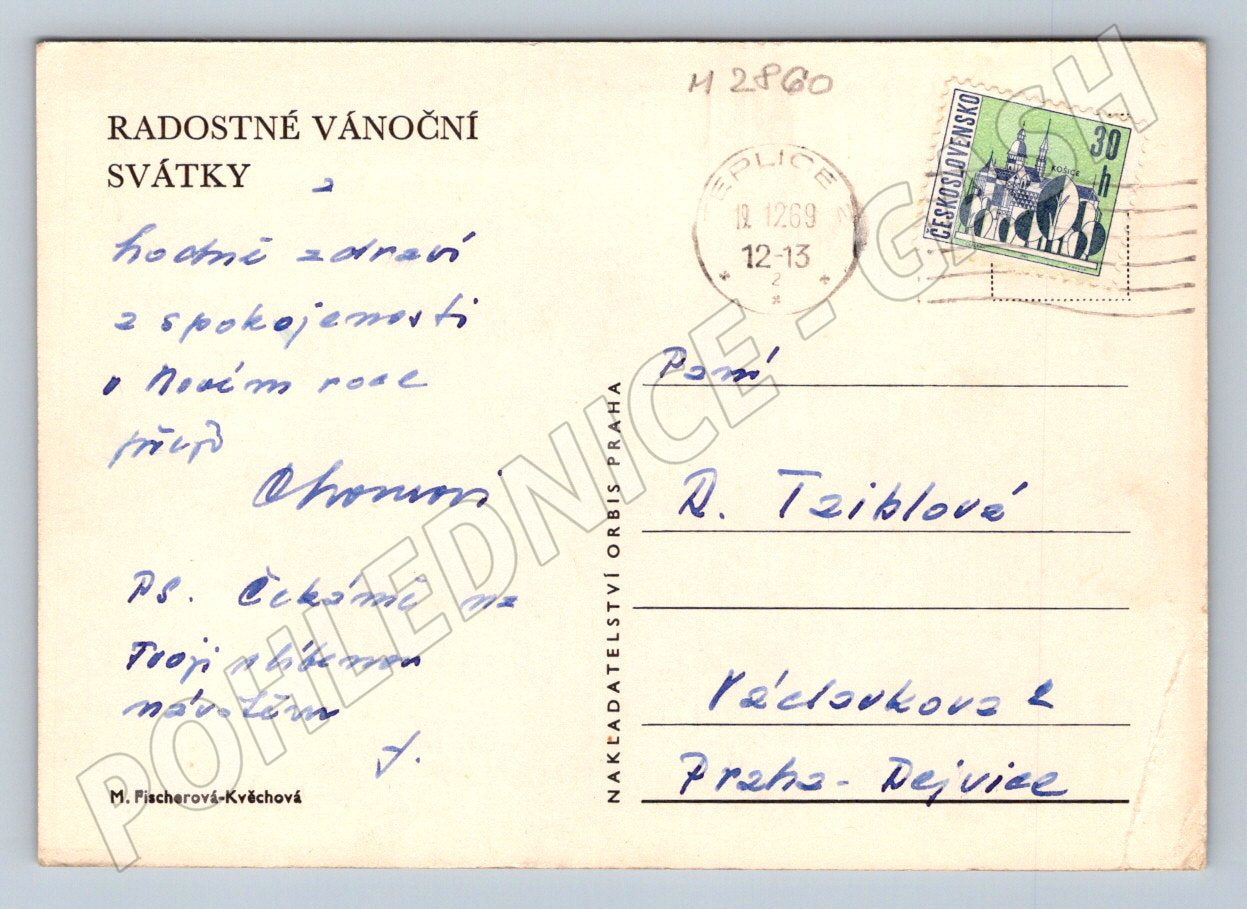 RADOSTNÉ VÁNOČNÍ
SVÁTKY a
hodně zdraví
a spokojenosti
v Novém roce
přejí
PS. Čekáme na
Tvoji slíbenou
návštěvu
J.
M. Fischerová-Kvěchová
NAKLADATELSTVÍ ORBIS PRAHA
M 2860
TEPLICE 2
12.1269
12-13
2
ČESKOSLOVENSKO
30 h
KOŠICE
Paní
D. Taiblová
Václavkova 2
Praha - Dejvice
POHLEDNICE - GASH